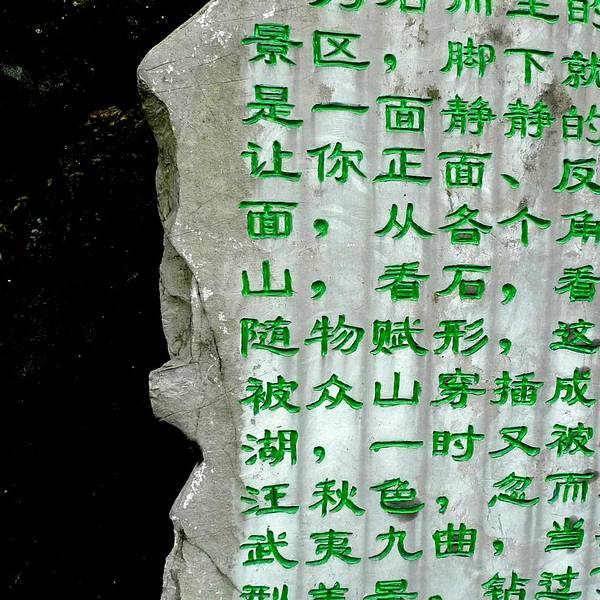 景区，脚下就
是一面静静的
让你正面、反
面，从各个角
山，看石，看
随物赋形，这
被众山穿插成
湖，一时又被
汪秋色，忽而
武夷九曲，当
型美景，钻过